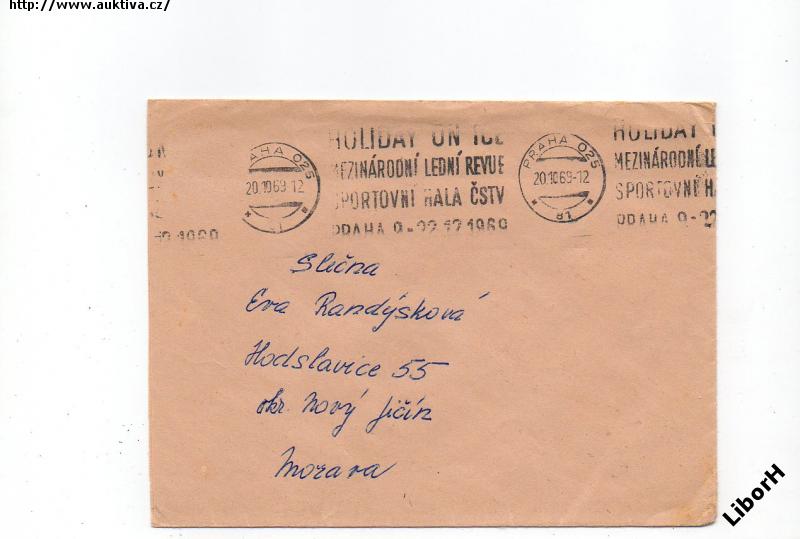 http://www.auktiva.cz/
PRAHA 025
20.10.69-12
HOLIDAY ON ICE
MEZINÁRODNÍ LEDNÍ REVUE
SPORTOVNÍ HALA ČSTV
PRAHA 9-22.12.1969
PRAHA 025
20.10.69-12
81
HOLIDAY
MEZINÁRODNÍ LE
SPORTOVNÍ HA
PRAHA 9-22
12.1969
Slečna
Eva Randýsková
Hodslavice 55
okr. Nový Jičín
Morava
LiborH